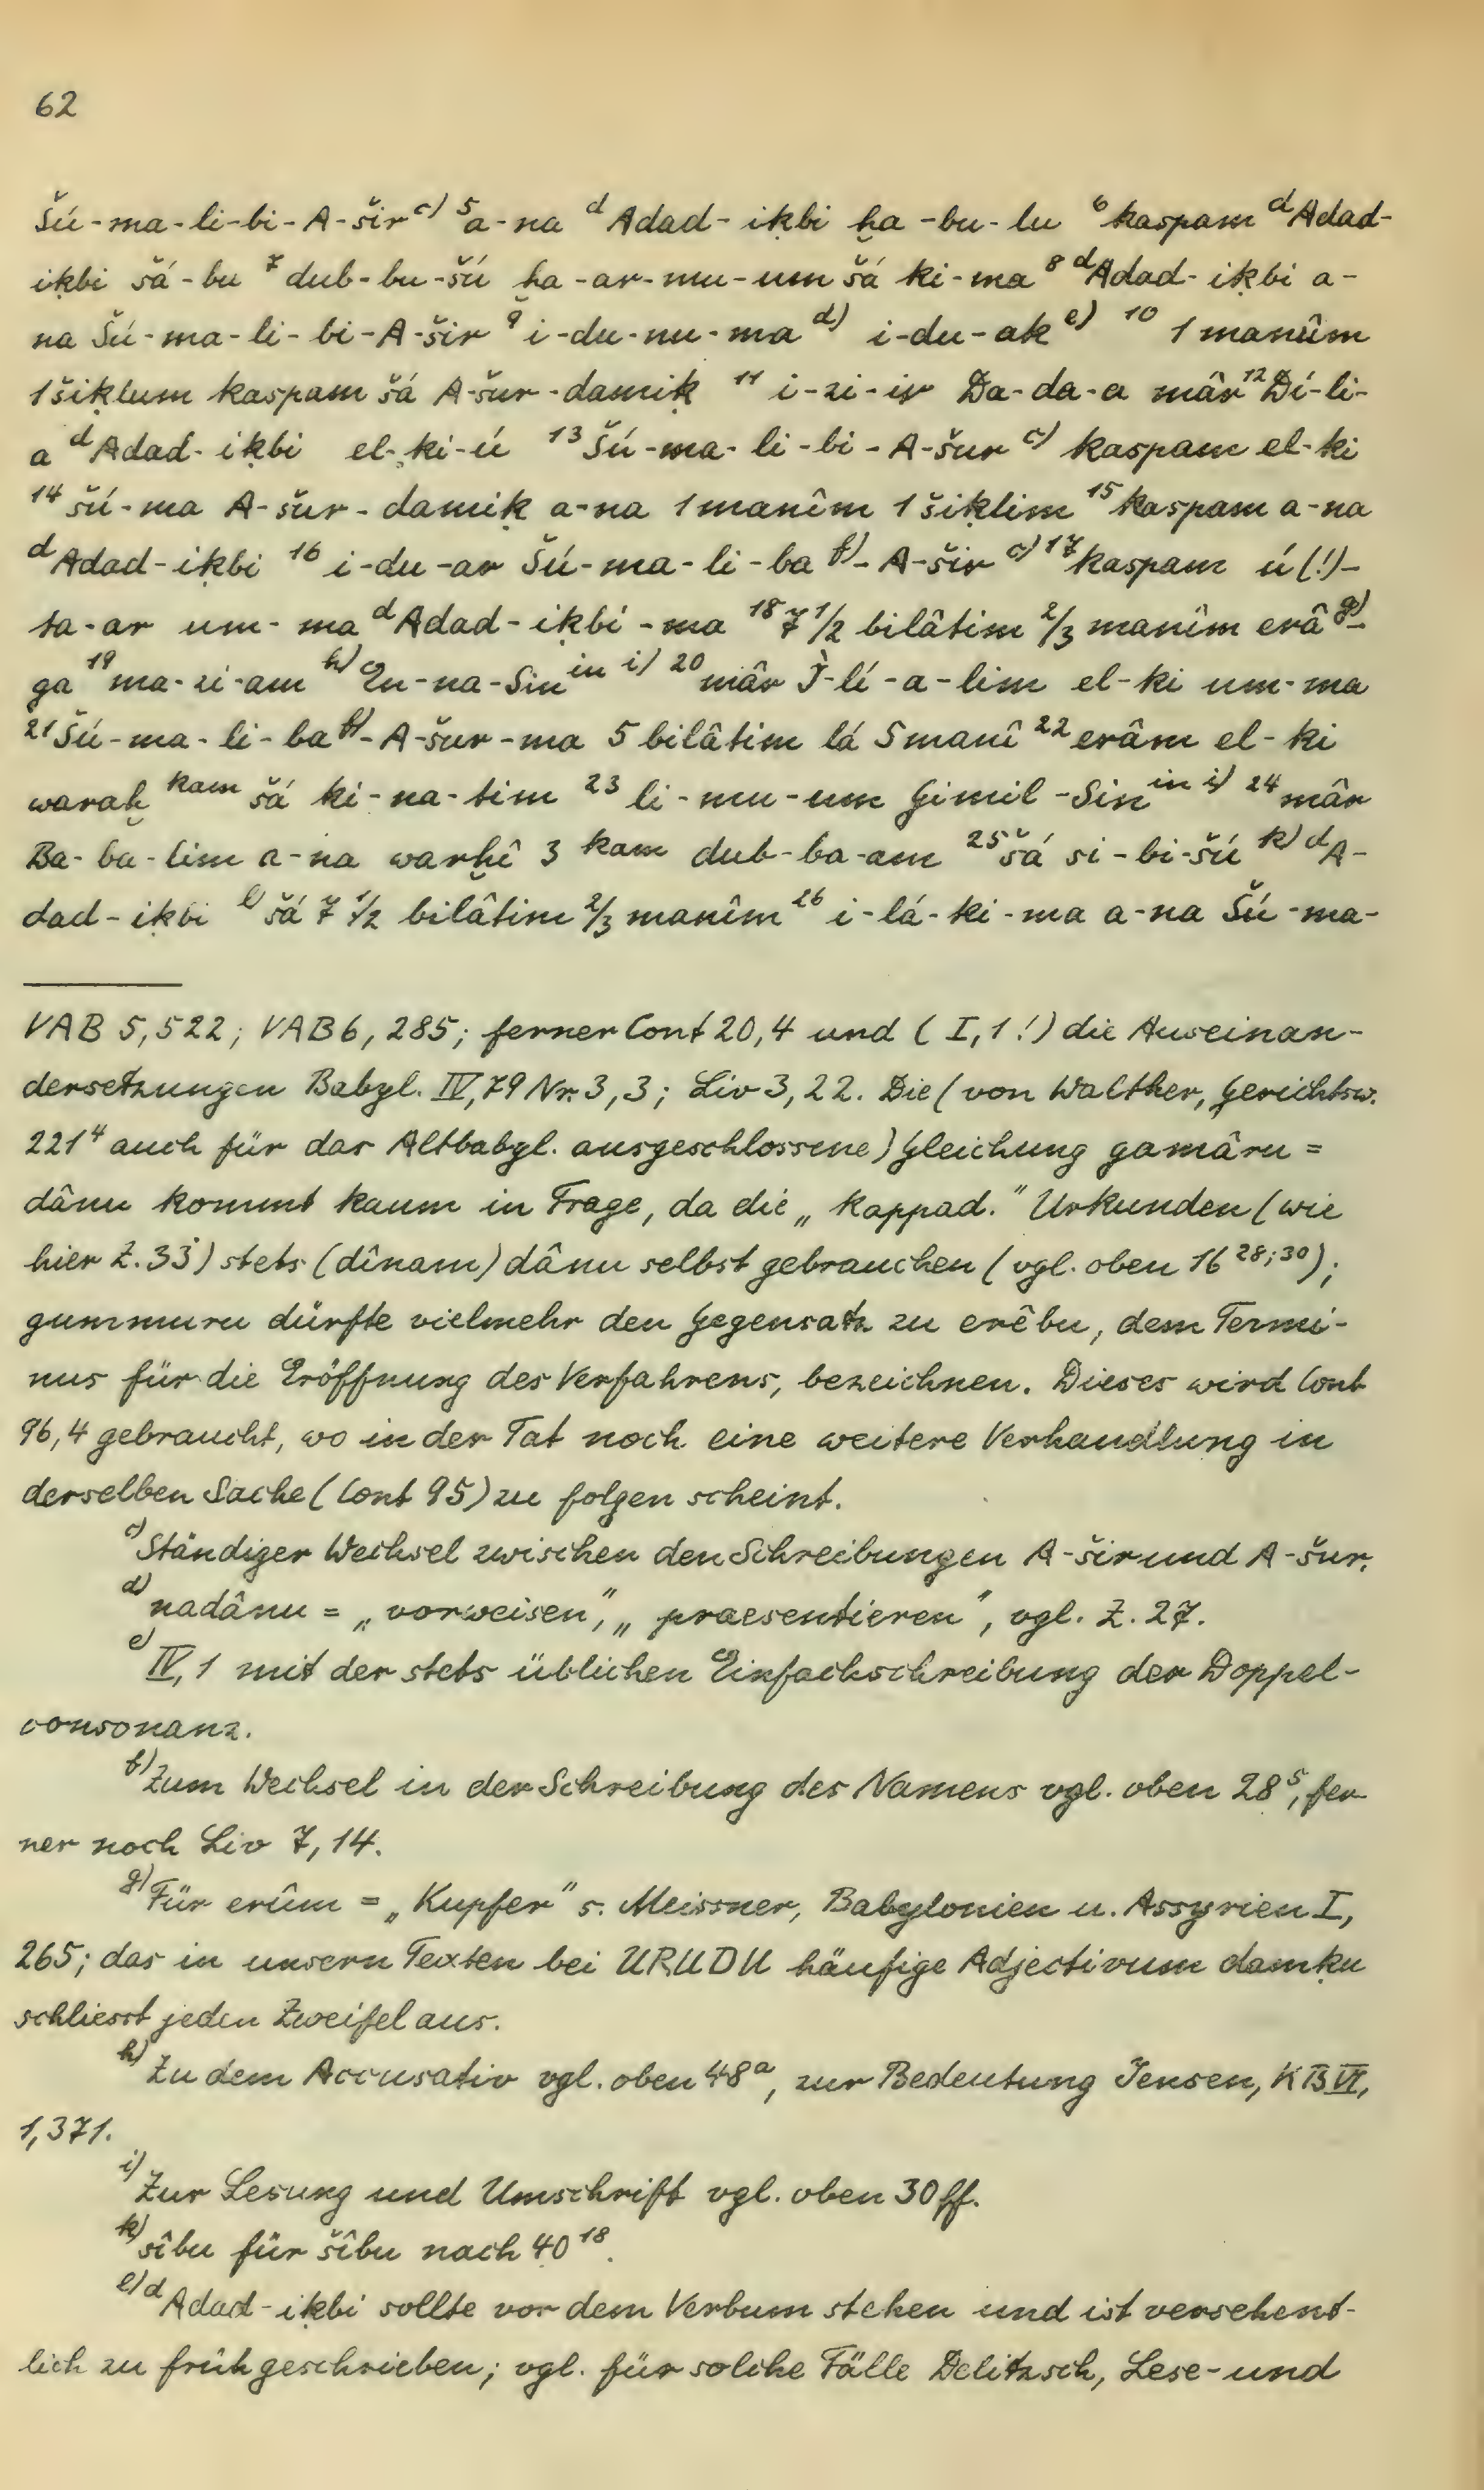 62
Šú-ma-li-bi-A-šir c) 5 a-na d Adad-iḳbi ḫa-bu-lu 6 kaspam d Adad-
iḳbi šá-bu 7 dub-bu-šú ḫa-ar-mu-um šá ki-ma 8 d Adad-iḳbi a-
na Šú-ma-li-bi-A-šir 9 i-du-nu-ma d) i-du-ak e) 10 1 manûm
1 šiḳlum kaspam šá A-šur-damiḳ 11 i-zi-ir Da-da-a mâr 12 Dí-li-
a d Adad-iḳbi el-ḳi-ú 13 Šú-ma-li-bi-A-šur c) kaspam el-ki
14 šú-ma A-šur-damiḳ a-na 1 manîm 1 šiḳlim 15 kaspam a-na
d Adad-iḳbi 16 i-du-ar Šú-ma-li-ba f)-A-šir c) 17 kaspam ú(!)-
ta-ar um-ma d Adad-iḳbi-ma 18 7 1/2 bilâtim 2/3 manîm erâ g)-
ga 19 ma-zi-am h) En-na-Sin in i) 20 mâr Ì-lí-a-lim el-ki um-ma
21 Šú-ma-li-ba f)-A-šur-ma 5 bilâtim lá 5 manî 22 erâm el-ki
waraḫ kam šá ki-na-tim 23 li-mu-um Gimil-Sin in i) 24 mâr
Ba-ba-lim a-na warḫê 3 kam dub-ba-am 25 šá si-bi-šú k) d A-
dad-iḳbi l) šá 7 1/2 bilâtim 2/3 manîm 26 i-lá-ki-ma a-na Šú-ma-
VAB 5,522; VAB 6, 285; ferner Cont 20,4 und (I,1!) die Auseinan-
dersetzungen Babyl. IV,79 Nr. 3,3; Liv 3,22. Die (von Walther, Gerichtsw.
221⁴ auch für das Altbabyl. ausgeschlossene) Gleichung gamâru =
dânu kommt kaum in Frage, da die „kappad.“ Urkunden (wie
hier Z. 33) stets (dînam) dânu selbst gebrauchen (vgl. oben 16 28;30);
gummuru dürfte vielmehr den Gegensatz zu erêbu, dem Termi-
nus für die Eröffnung des Verfahrens, bezeichnen. Dieses wird Cont
96,4 gebraucht, wo in der Tat noch eine weitere Verhandlung in
derselben Sache (Cont 95) zu folgen scheint.
c) Ständiger Wechsel zwischen den Schreibungen A-šir und A-šur.
d) nadânu = „vorweisen“, „praesentieren“, vgl. Z. 27.
e) IV,1 mit der stets üblichen Einfachschreibung der Doppel-
consonanz.
f) Zum Wechsel in der Schreibung des Namens vgl. oben 28⁵, fer-
ner noch Liv 7,14.
g) Für erûm = „Kupfer“ s. Meissner, Babylonien u. Assyrien I,
265; das in unsern Texten bei URUDU häufige Adjectivum damḳu
schliesst jeden Zweifel aus.
h) Zu dem Accusativ vgl. oben 48 a, zur Bedeutung Jensen, KB VI,
1,371.
i) Zur Lesung und Umschrift vgl. oben 30 ff.
k) sîbu für šîbu nach 40 18.
l) d Adad-iḳbi sollte vor dem Verbum stehen und ist versehent-
lich zu früh geschrieben; vgl. für solche Fälle Delitzsch, Lese- und